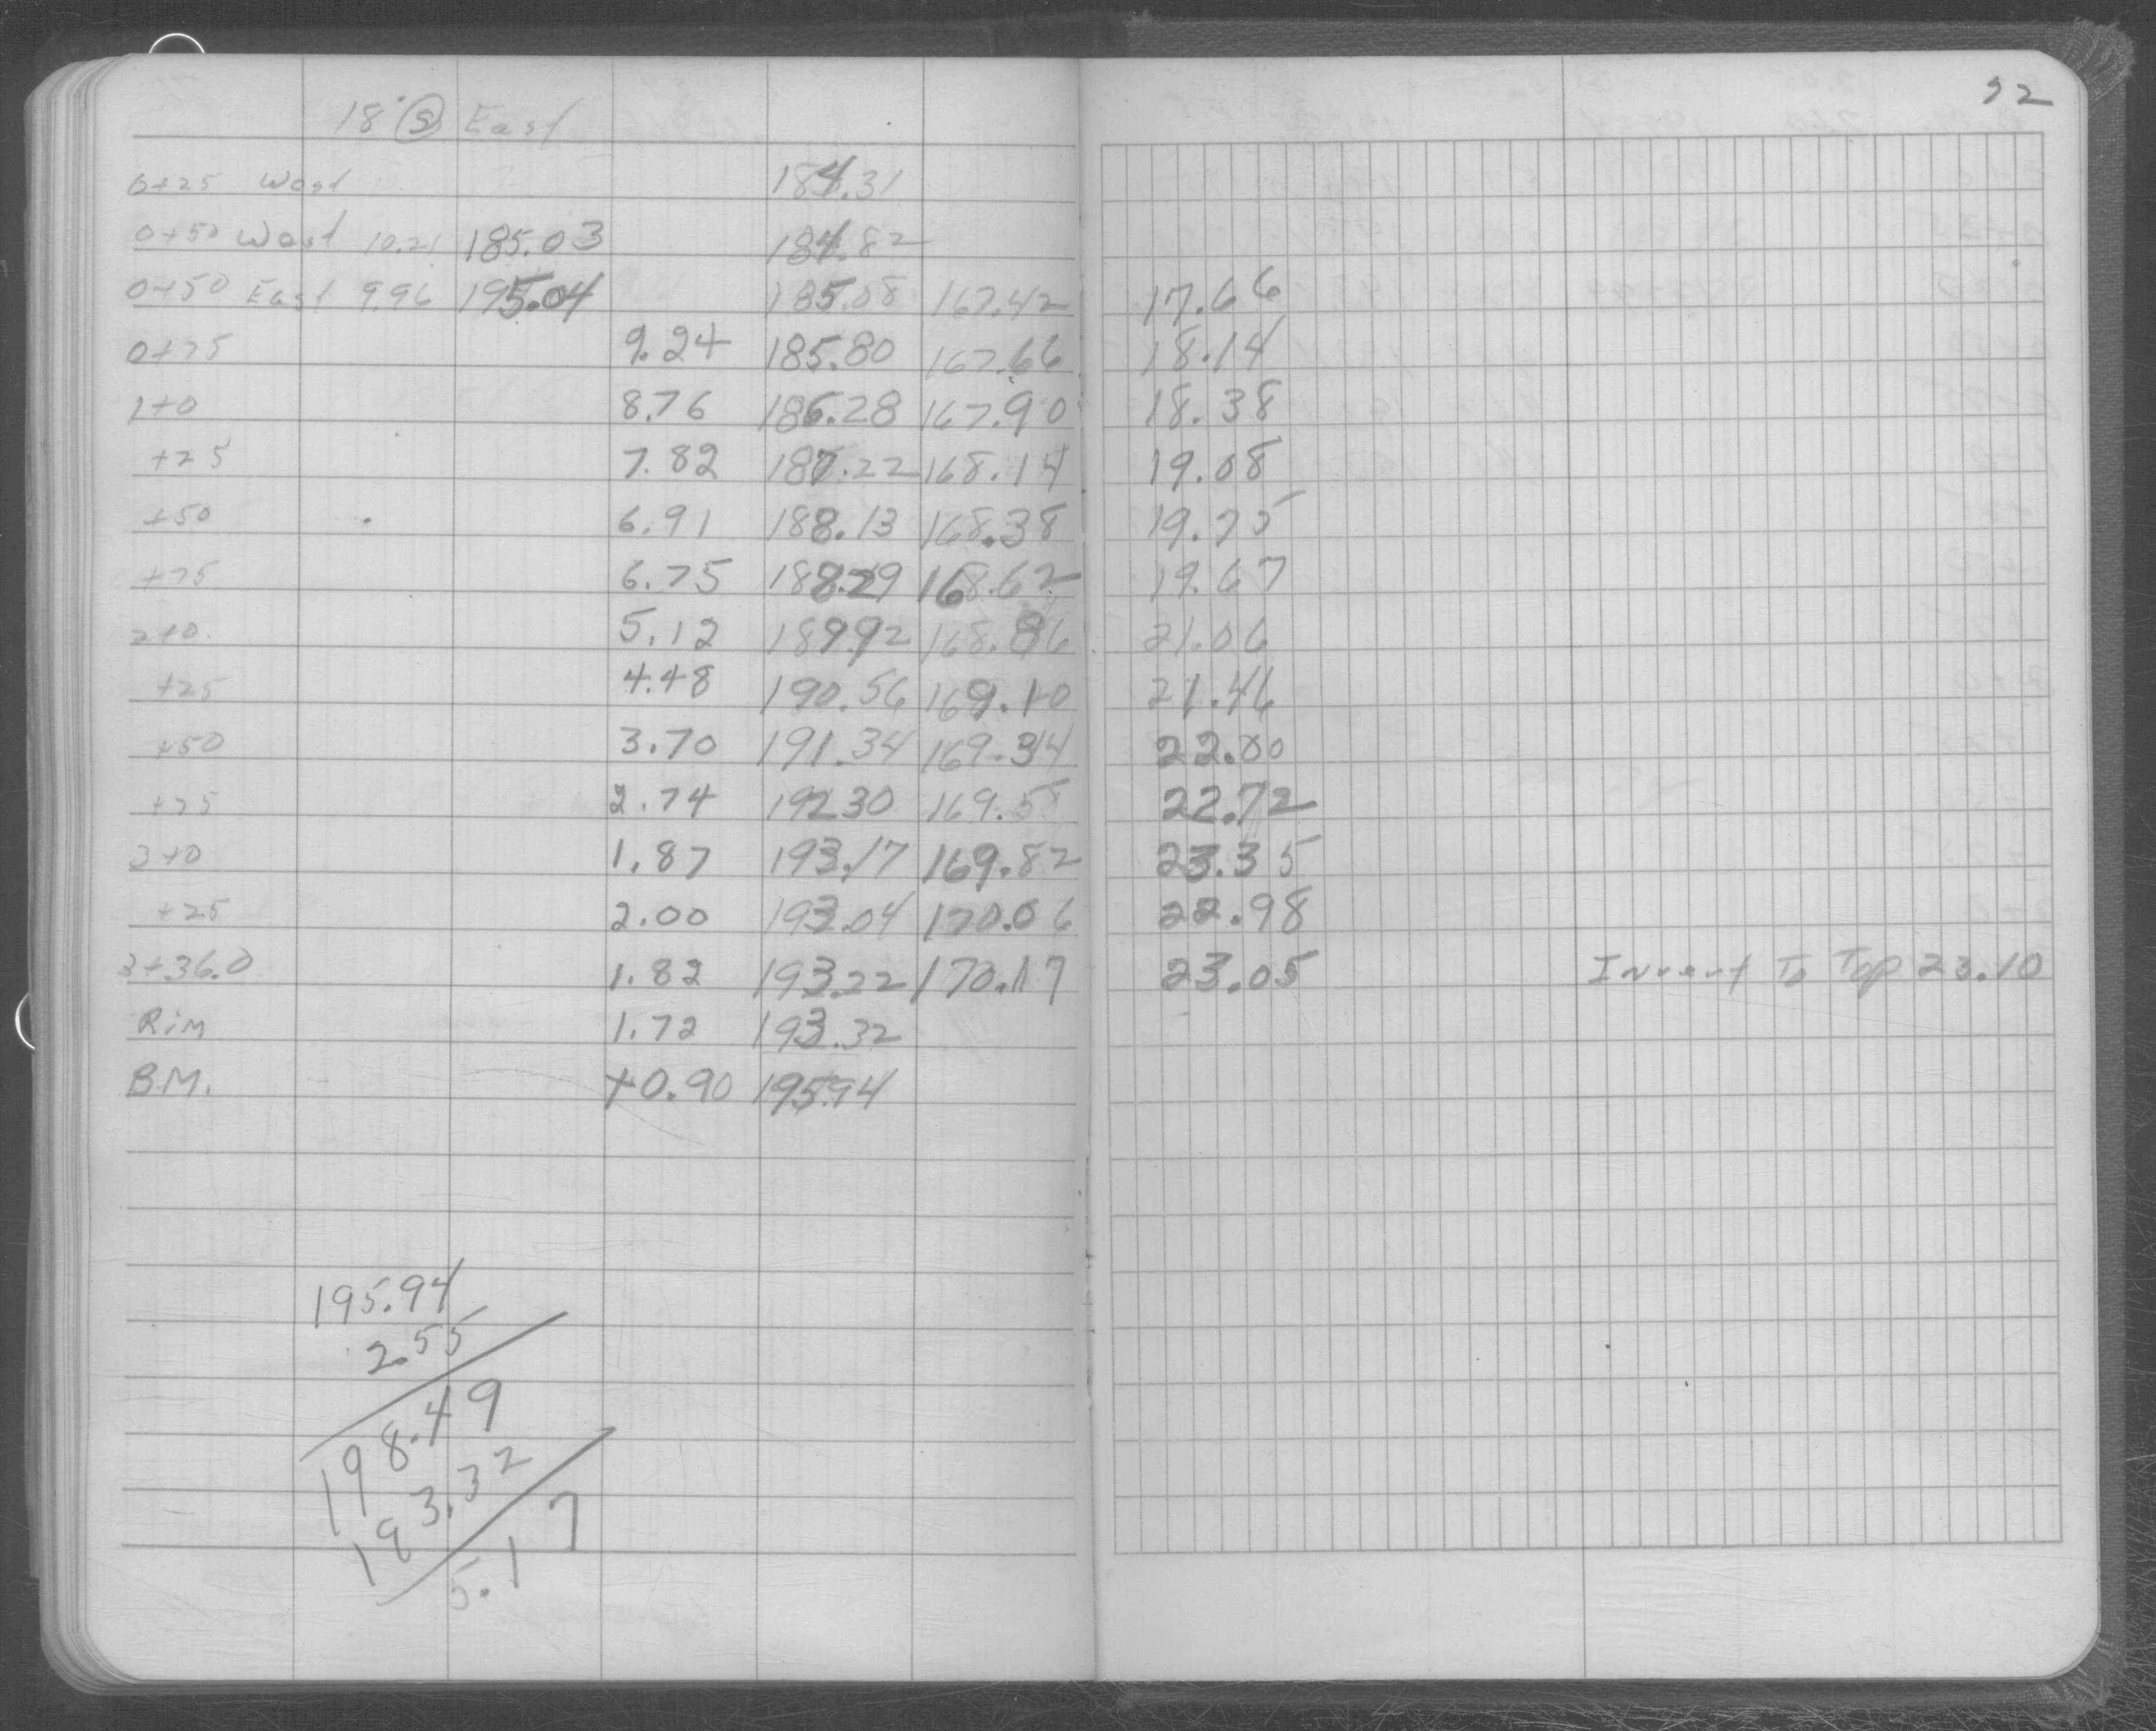 32
18" S East
0+25 West 184.31
0+50 West 10.21 185.03 184.82
0+50 East 9.96 195.04 185.08 167.42 17.66
0+75 9.24 185.80 167.66 18.14
1+0 8.76 186.28 167.90 18.38
+25 7.82 187.22 168.14 19.08
+50 6.91 188.13 168.38 19.75
+75 6.75 188.29 168.62 19.67
2+0 5.12 189.92 168.86 21.06
+25 4.48 190.56 169.10 21.46
+50 3.70 191.34 169.34 22.00
+75 2.74 192.30 169.58 22.72
3+0 1.87 193.17 169.82 23.35
+25 2.00 193.04 170.06 22.98
3+36.0 1.82 193.22 170.17 23.05 Invert To Top 23.10
Rim 1.72 193.32
B.M. +0.90 195.94
195.94
2.55
198.49
193.32
5.17